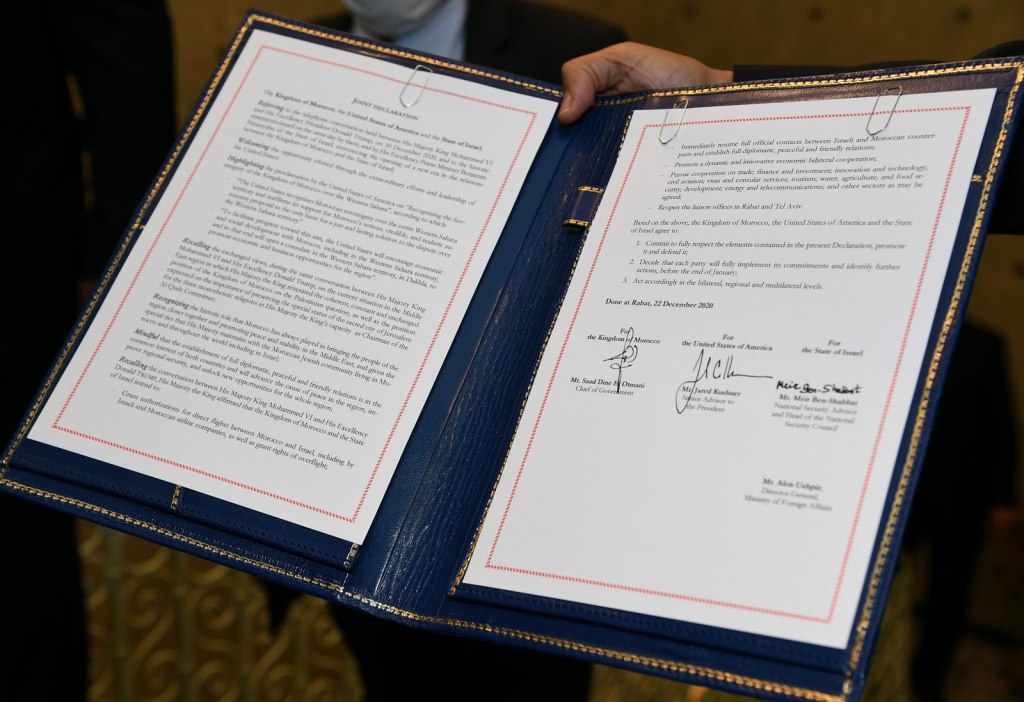 JOINT DECLARATION
The Kingdom of Morocco, the United States of America and the State of Israel,
Referring to the telephone conversation held between His Majesty King Mohammed VI
and His Excellency President Donald Trump, on 10 December 2020, and to the historic
statements issued on the same day by them, and by His Excellency Prime Minister Benjamin
Netanyahu of the State of Israel, announcing the opening of a new era in the relations
between the Kingdom of Morocco and the State of Israel;
Welcoming the opportunity created through the extraordinary efforts and leadership of
the United States;
Highlighting the proclamation by the United States of America on "Recognizing the Sov-
ereignty of the Kingdom of Morocco over the Western Sahara", according to which:
- "The United States recognizes Moroccan sovereignty over the entire Western Sahara
territory and reaffirms its support for Morocco's serious, credible, and realistic au-
tonomy proposal as the only basis for a just and lasting solution to the dispute over
the Western Sahara territory";
- "To facilitate progress toward this aim, the United States will encourage economic
and social development with Morocco, including in the Western Sahara territory,
and to that end will open a consulate in the Western Sahara territory, in Dakhla, to
promote economic and business opportunities for the region".
Recalling the exchanged views, during the same conversation between His Majesty King
Mohammed VI and His Excellency Donald Trump, on the current situation in the Middle
East region in which His Majesty the King reiterated the coherent, constant and unchanged
position of the Kingdom of Morocco on the Palestinian question, as well as the position
expressed on the importance of preserving the special status of the sacred city of Jerusalem
for the three monotheistic religions in His Majesty the King's capacity as Chairman of the
Al-Quds Committee;
Recognizing the historic role that Morocco has always played in bringing the people of the
region closer together and promoting peace and stability in the Middle East, and given the
special ties that His Majesty maintains with the Moroccan Jewish community living in Mo-
rocco and throughout the world including in Israel;
Mindful that the establishment of full diplomatic, peaceful and friendly relations is in the
common interest of both countries and will advance the cause of peace in the region, im-
prove regional security, and unlock new opportunities for the whole region;
Recalling the conversation between His Majesty King Mohammed VI and His Excellency
Donald TRUMP, His Majesty the King affirmed that the Kingdom of Morocco and the State
of Israel intend to:
- Grant authorizations for direct flights between Morocco and Israel, including by
Israeli and Moroccan airline companies, as well as grant rights of overflight;
- Immediately resume full official contacts between Israeli and Moroccan counter-
parts and establish full diplomatic, peaceful and friendly relations;
- Promote a dynamic and innovative economic bilateral cooperation;
- Pursue cooperation on trade; finance and investment; innovation and technology;
civil aviation; visas and consular services; tourism; water, agriculture, and food se-
curity; development; energy and telecommunications; and other sectors as may be
agreed;
- Reopen the liaison offices in Rabat and Tel Aviv.
Based on the above, the Kingdom of Morocco, the United States of America and the State
of Israel agree to:
1. Commit to fully respect the elements contained in the present Declaration, promote
it and defend it;
2. Decide that each party will fully implement its commitments and identify further
actions, before the end of January;
3. Act accordingly at the bilateral, regional and multilateral levels.
Done at Rabat, 22 December 2020
For
the Kingdom of Morocco
Mr. Saad Dine El Otmani
Chief of Government
For
the United States of America
Mr. Jared Kushner
Senior Advisor to
the President
For
the State of Israel
Meir Ben-Shabbat
Mr. Meir Ben-Shabbat
National Security Advisor
and Head of the National
Security Council
Mr. Alon Ushpiz,
Director General,
Ministry of Foreign Affairs